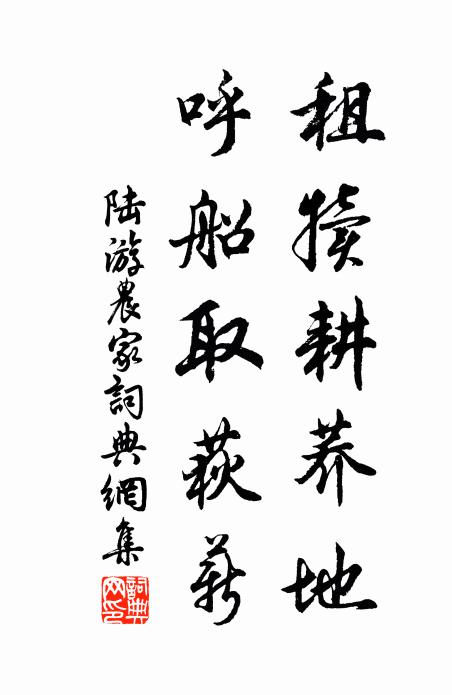 租犢耕蕎地
呼船取荻薪
陆游農家詞典網集
詞典网印